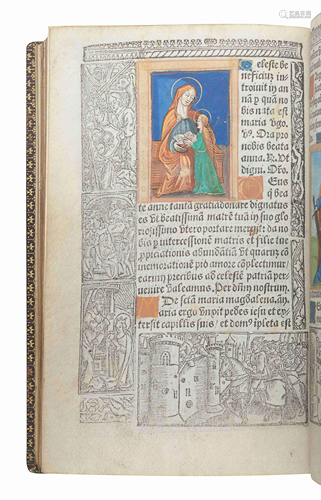 eleste be
neficiuz in
troiuit in an
na p̄ quā no
bis nata est
maria vgo.
v̄. Ora pro
nobis beata
anna. R. Vt
digni. Oro.
Deus
qui bea
te anne tantā gratiā donare dignatus
es vt beatissimā matrē tuā in suo glo
riosissimo vtero portare mer
da no
bis p̄ intercessionē matris et filie tue
ꝓpiciationis abundātiā vt quarum cō
memorationē pio amore cōplectimur
earum precibus ad celestē patriā per
uenire valeamus. Per dn̄m nostrum.
De scā maria magdalena. an̄
aria ergo vnxit pedes iesu et ex
tersit capillis suis / et dom⁹ īpleta est